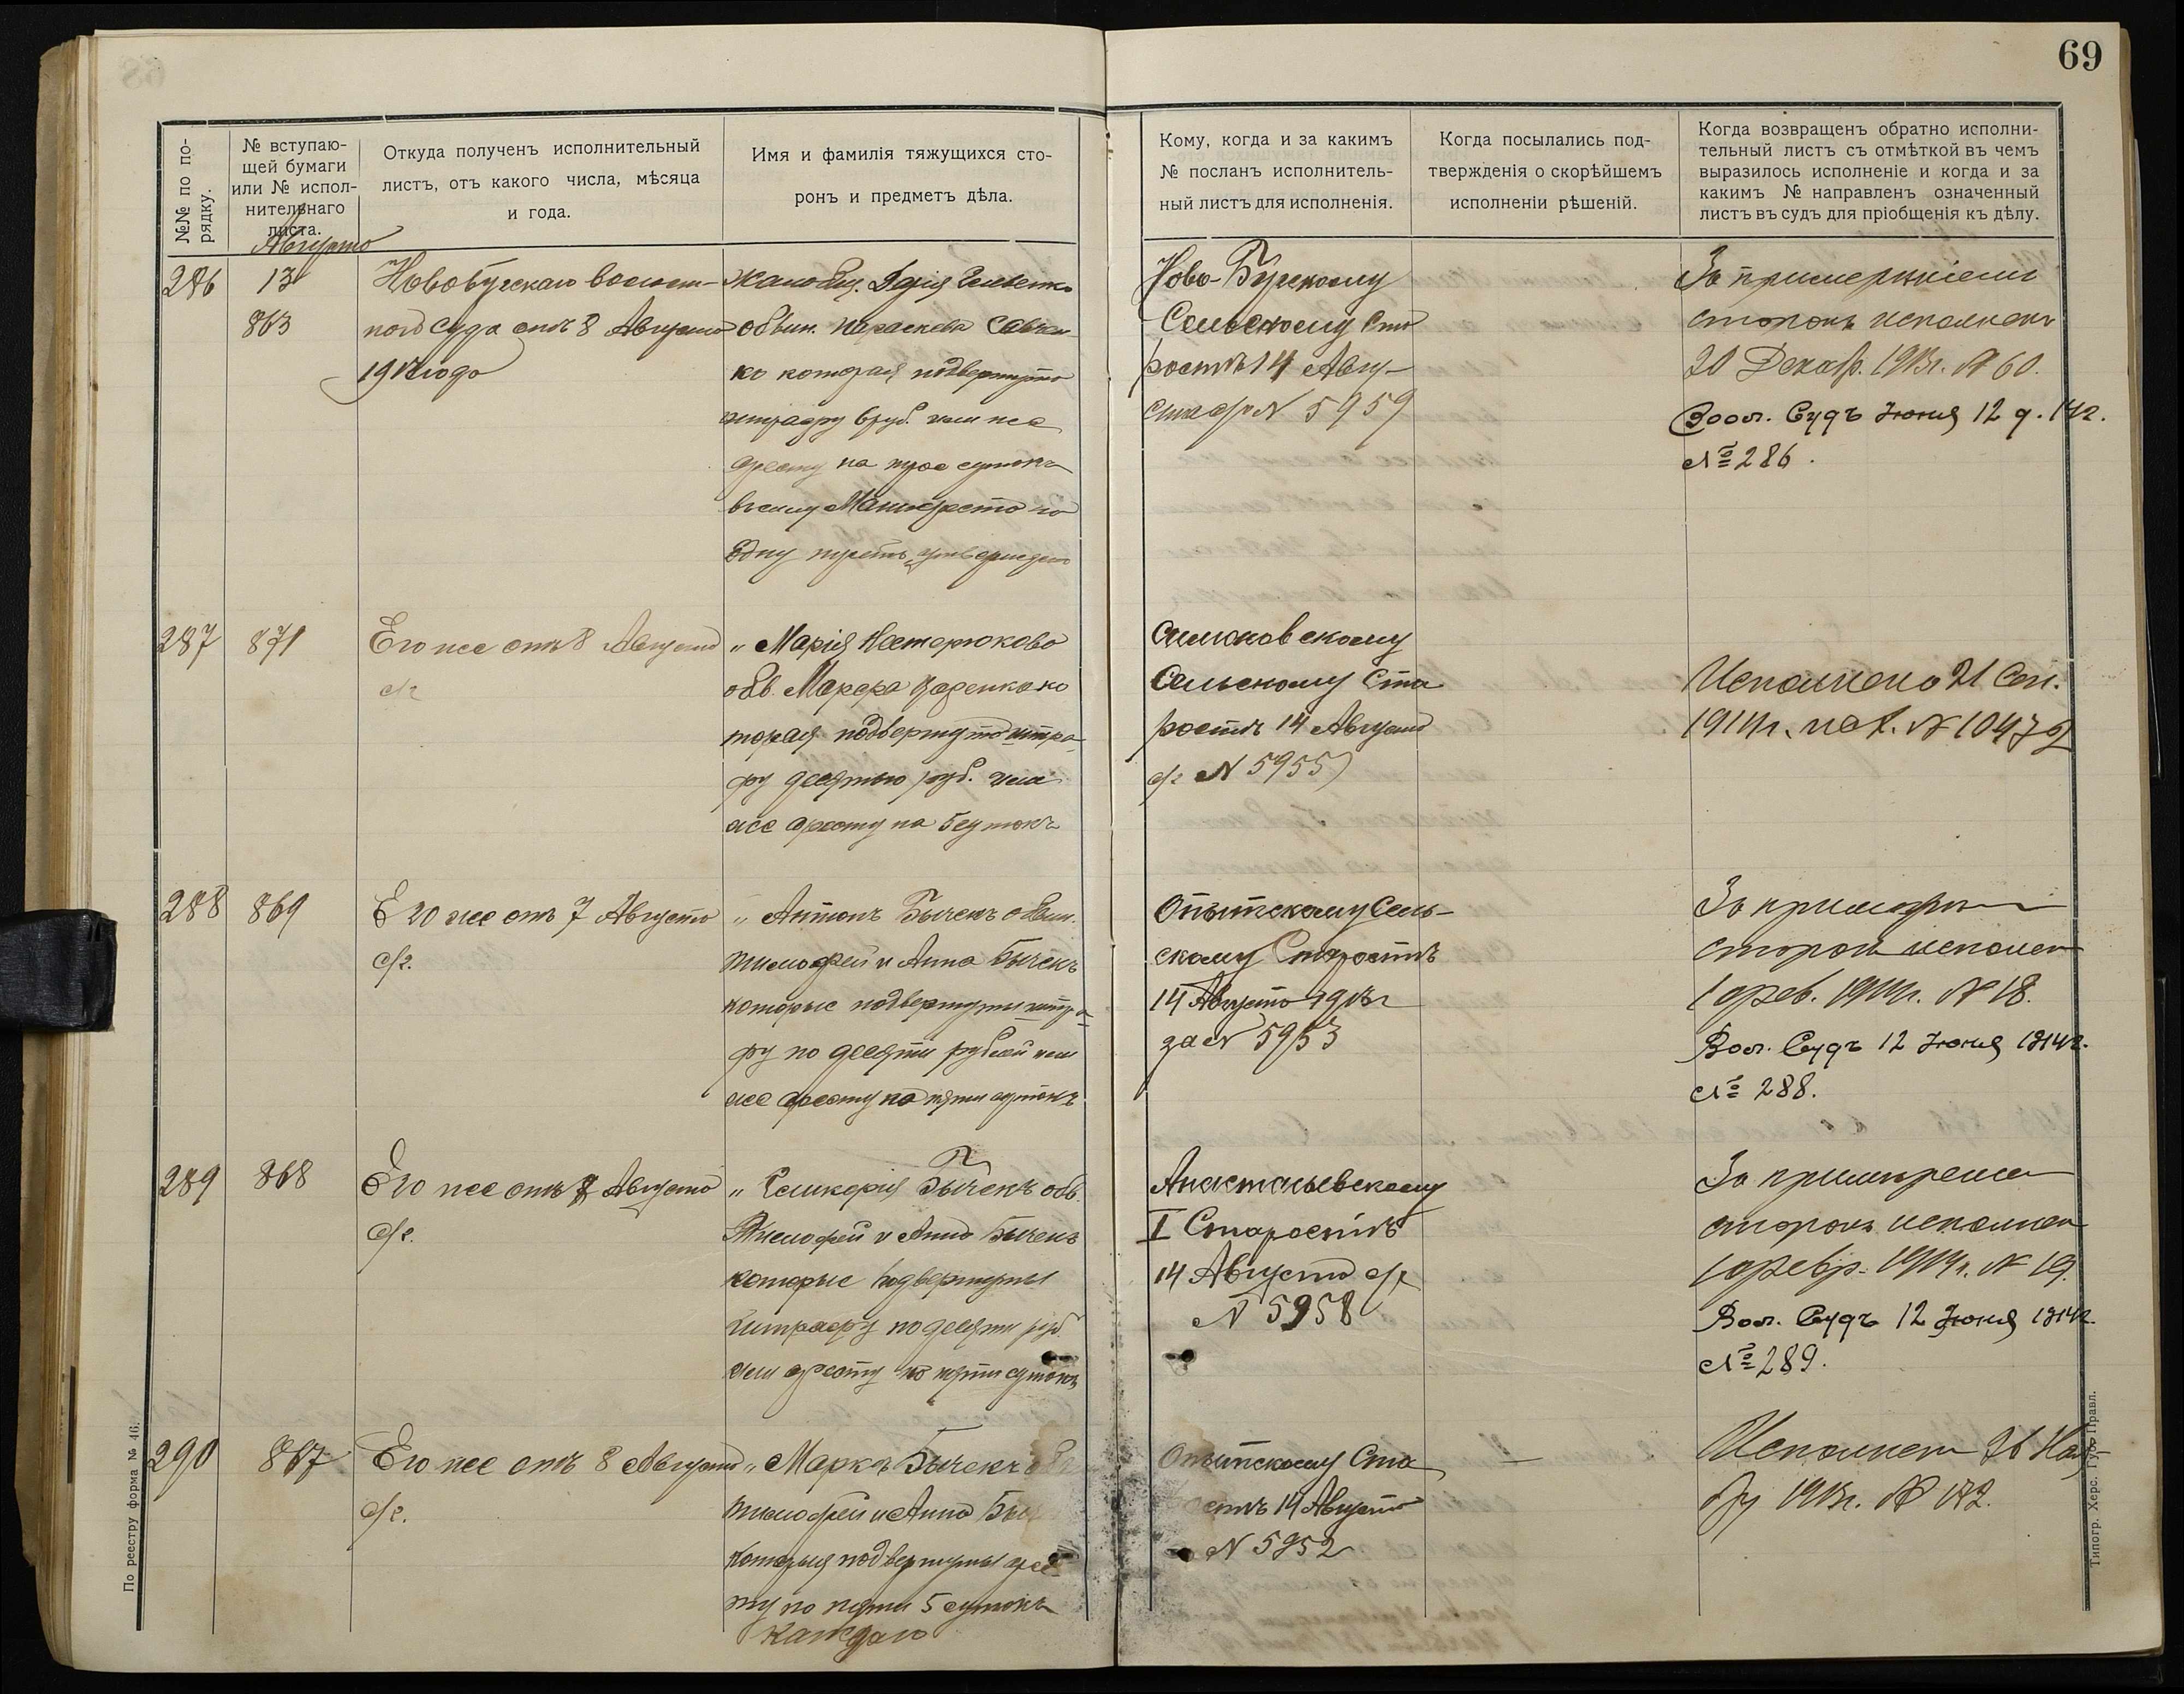 69
№№ по по-
рядку.
№ вступаю-
щей бумаги
или № испол-
нительнаго
листа.
Откуда полученъ исполнительный
листъ, отъ какого числа, мѣсяца
и года.
Имя и фамилія тяжущихся сто-
ронъ и предметъ дѣла.
Кому, когда и за какимъ
№ посланъ исполнитель-
ный листъ для исполненія.
Когда посылались под-
твержденія о скорѣйшемъ
исполненіи рѣшеній.
Когда возвращенъ обратно исполни-
тельный листъ съ отмѣткой въ чемъ
выразилось исполненіе и когда и за
какимъ № направленъ означенный
листъ въ судъ для пріобщенія къ дѣлу.
Августа
286
13
863
Новобугскаго волост-
ного суда отъ 8 Августа
1913 года
обвин. Параскева Савчен
ко которая подвергнута
штрафу 6 руб. или же
аресту на трое сутокъ
Манифеста по
одну треть
Ново-Бугскому
Сельскому Ста
ростѣ 14 Авгу-
ста с/г N 5959
За примереніемъ
сторонъ исполненъ
20 Декаб. 1913г. № 60.
Вол. Судъ Июня 12 д. 14г.
№ 286.
287
871
Его же отъ 8 Августа
с/г
" Марія Нестерюкова
обв. Марфа
торая подвергнута штра
фу десятью руб. или
же аресту на 5 сутокъ
Сельскому Ста
ростѣ 14 Августа
с/г N 5955
Исполнено 21 Сен.
1914г. № 10472
288
869
Его же отъ 7 Августа
с/г.
" Антонъ Быченъ обвин.
Тимофей и Анна Быченъ
которые подвергнуты штра
фу по десяти рублей или
же аресту на пяти сутокъ
Опытскому Сель-
скому Старостѣ
14 Августа 1913г
за N 5953
За примирен
сторон исполнен
1 фев. 1914г. № 18.
Вол. Судъ 12 Июня 1914г.
№ 288.
289
868
Его же отъ 8 Августа
с/г.
" Гликерія Быченъ обв.
Тимофей и Анна Быченъ
которые подвергнуты
штрафу по десяти руб.
или аресту по пяти сутокъ
Анастасьевскому
I Старостѣ
14 Августа с/г
N 5958
За примирени
сторонъ исполнен
1 февр. 1914г. № 19.
Вол. Судъ 12 Июня 1914г.
№ 289.
290
867
Его же отъ 8 Августа
с/г.
" Маркъ Быченъ
Тимофей и Анна
которыя подвергнуты арес
ту по пяти 5 сутокъ
каждаго
Опытскому Ста
14 Августа
N 5952
Исполнен 26 Ноя-
бр 1913г. №
По реестру форма № 46.
Типогр. Херс. Губ. Правл.